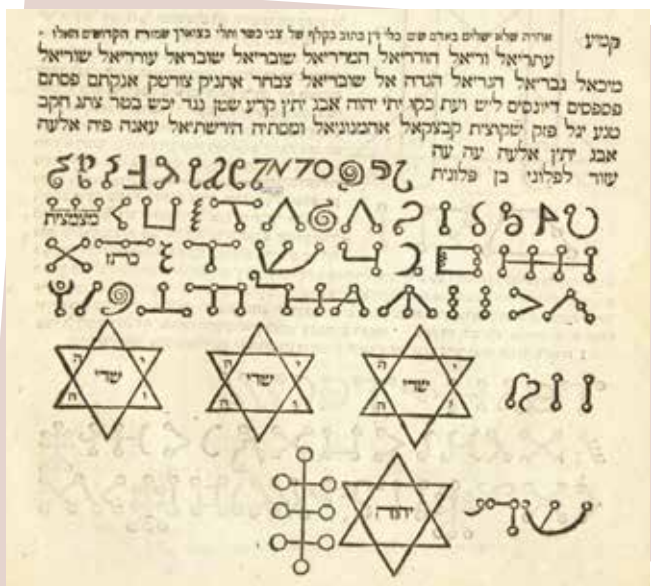 קמיע אחרת שלא ישלוט באדם שום כלי זין כתוב בקלף של צבי כשר ותלי בצוארך שמות הקדושים האלו
עתריאל וריאל הודריאל המדריאל שובריאל שובראל עודריאל שוריאל
מיכאל גבריאל הגריאל הגדה אל שובריאל צבחר אתניק צורטק אנקתם פסתם
פספסים דיונסים ליש ועת כקו יתי יהוה אבג יתץ קרע שטן נגד יכש בטר צתג חקב
טנע יגל פזק שקוצית קבצקאל אהמנוניאל ומסתיה הירשתיאל עאנה פיה אלעה
אבג יתץ אלעה עה עה
עזור לפלוני בן פלונית
מצמצית
כוזו
י ה שדי ו ה
י ה שדי ו ה
י ה שדי ו ה
יהוה